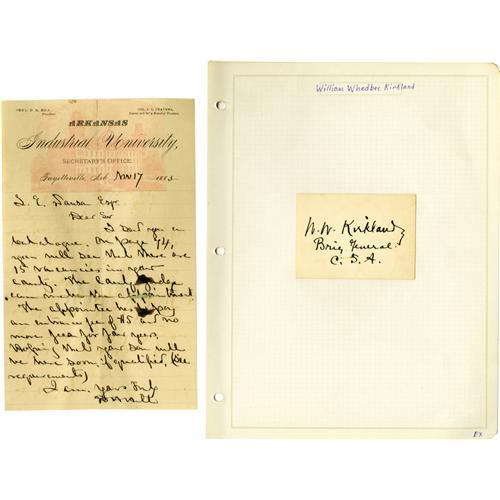 GEN'L D. H. HILL,
President
COL. J. L. CRAVENS,
ARKANSAS
Industrial University,
SECRETARY'S OFFICE.
Fayetteville, Ark. Nov 17 188
Esqr
Dear Sir
I send you a
Catalogue. On page 74,
you will see that there are
15 vacancies in your
County. The County Judge
can make the appointment
The appointee has to pay
an entrance fee of $5 and no
more fees for four years.
Hoping that your son will
be here soon, if qualified, (see
requirements)
I am, yours truly
D H Hill
William Whedbee Kirkland
W. W. Kirkland
Brig General
C. S. A.
EX